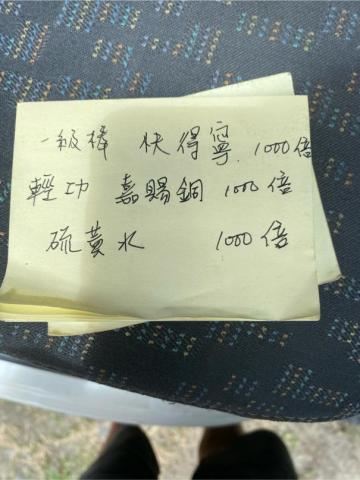 一級棒 快得寧 1000倍
輕功 嘉賜銅 1000倍
硫黃水 1000倍